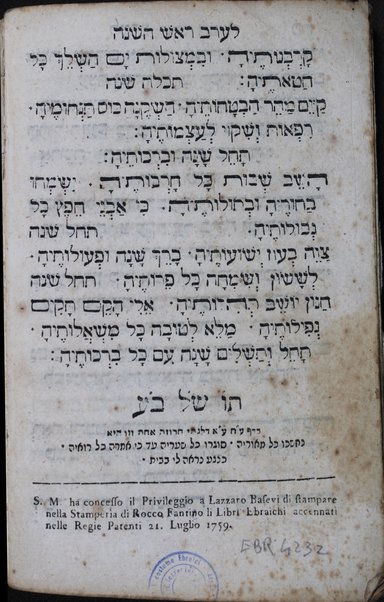 לערב ראש השנה
קַיְבְנוֹתֶיהָ׃ וּבִמְצוּלוֹת יָם הַשְׁלֵךְ כָּל
חַטֹּאתֶיהָ׃ תכלה שנה
קַיֵּם מַהֵר הַבְטָחוֹתֶיהָ׃ הַשְׁקֵנָּה כּוֹס תַּנְחוּמֶיהָ׃
רְפָאוּת וְשִׁקּוּי לְעַצְמוֹתֶיהָ׃
תָּחֵל שָׁנָה וּבִרְכוֹתֶיהָ׃
הָשֵׁב שְׁבוּת כָּל חָרְבוֹתֶיהָ. יִשְׂמְחוּ
בַּחוּרֶיהָ וּבְתוּלוֹתֶיהָ. כִּי אַבְנֵי חֵפֶץ כָּל
גְּבוּלוֹתֶיהָ׃ תחל שנה
צַוֵּה בְּעוֹז יְשׁוּעוֹתֶיהָ׃ בָּרֵךְ שָׁנָה וּפְעוּלוֹתֶיהָ׃
לְשָׂשׂוֹן וְשִׂמְחָה כָּל פֵּרוֹתֶיהָ׃ תחל שנה
חַנּוּן יוֹשֵׁב תְּהִלּוֹתֶיהָ׃ אֵלִי הָקֵם חָקִים
נְפִילוֹתֶיהָ׃ מַלֵּא לְטוֹבָה כָּל מִשְׁאֲלוֹתֶיהָ׃
תָּחֵל וְתַשְׁלִים שָׁנָה עִם כָּל בִּרְכוֹתֶיהָ׃
בדף ע״ח ע״א דלגתי חרוזה אחת וזו היא
נחשכו כל מאוריה׃ סוגרו כל שעריה עד כי אמרה כל רואיה׃
כנגע נראה לי בבית׃
S. M. ha concesso il Privileggio a Lazzaro Basevi di stampare
nella Stamperia di Rocco Fantino li Libri Ebraichi accennati
nelle Regie Patenti 21. Luglio 1759.
EBR 4232